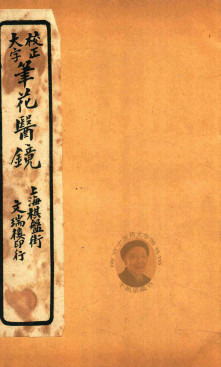 校正
大字
筆花醫鏡
上海棋盤街
文瑞樓印行